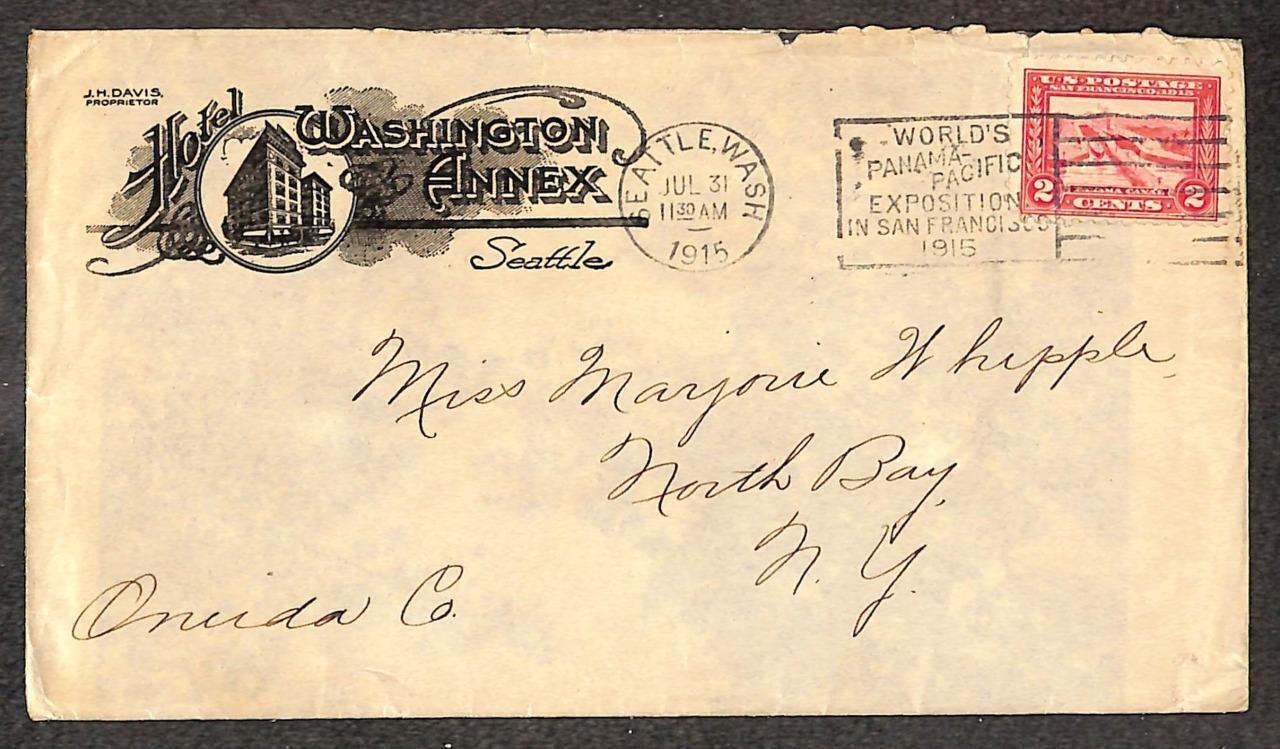 J.H. DAVIS,
PROPRIETOR
Hotel
WASHINGTON
ANNEX
Seattle
SEATTLE, WASH
JUL 31
11 30 AM
1915
WORLD'S
PANAMA-
PACIFIC
EXPOSITION
IN SAN FRANCISCO
1915
U.S. POSTAGE
SAN FRANCISCO, 1915
PANAMA CANAL
2 CENTS 2
Miss Marjorie Whipple,
North Bay,
N. Y.
Oneida Co.